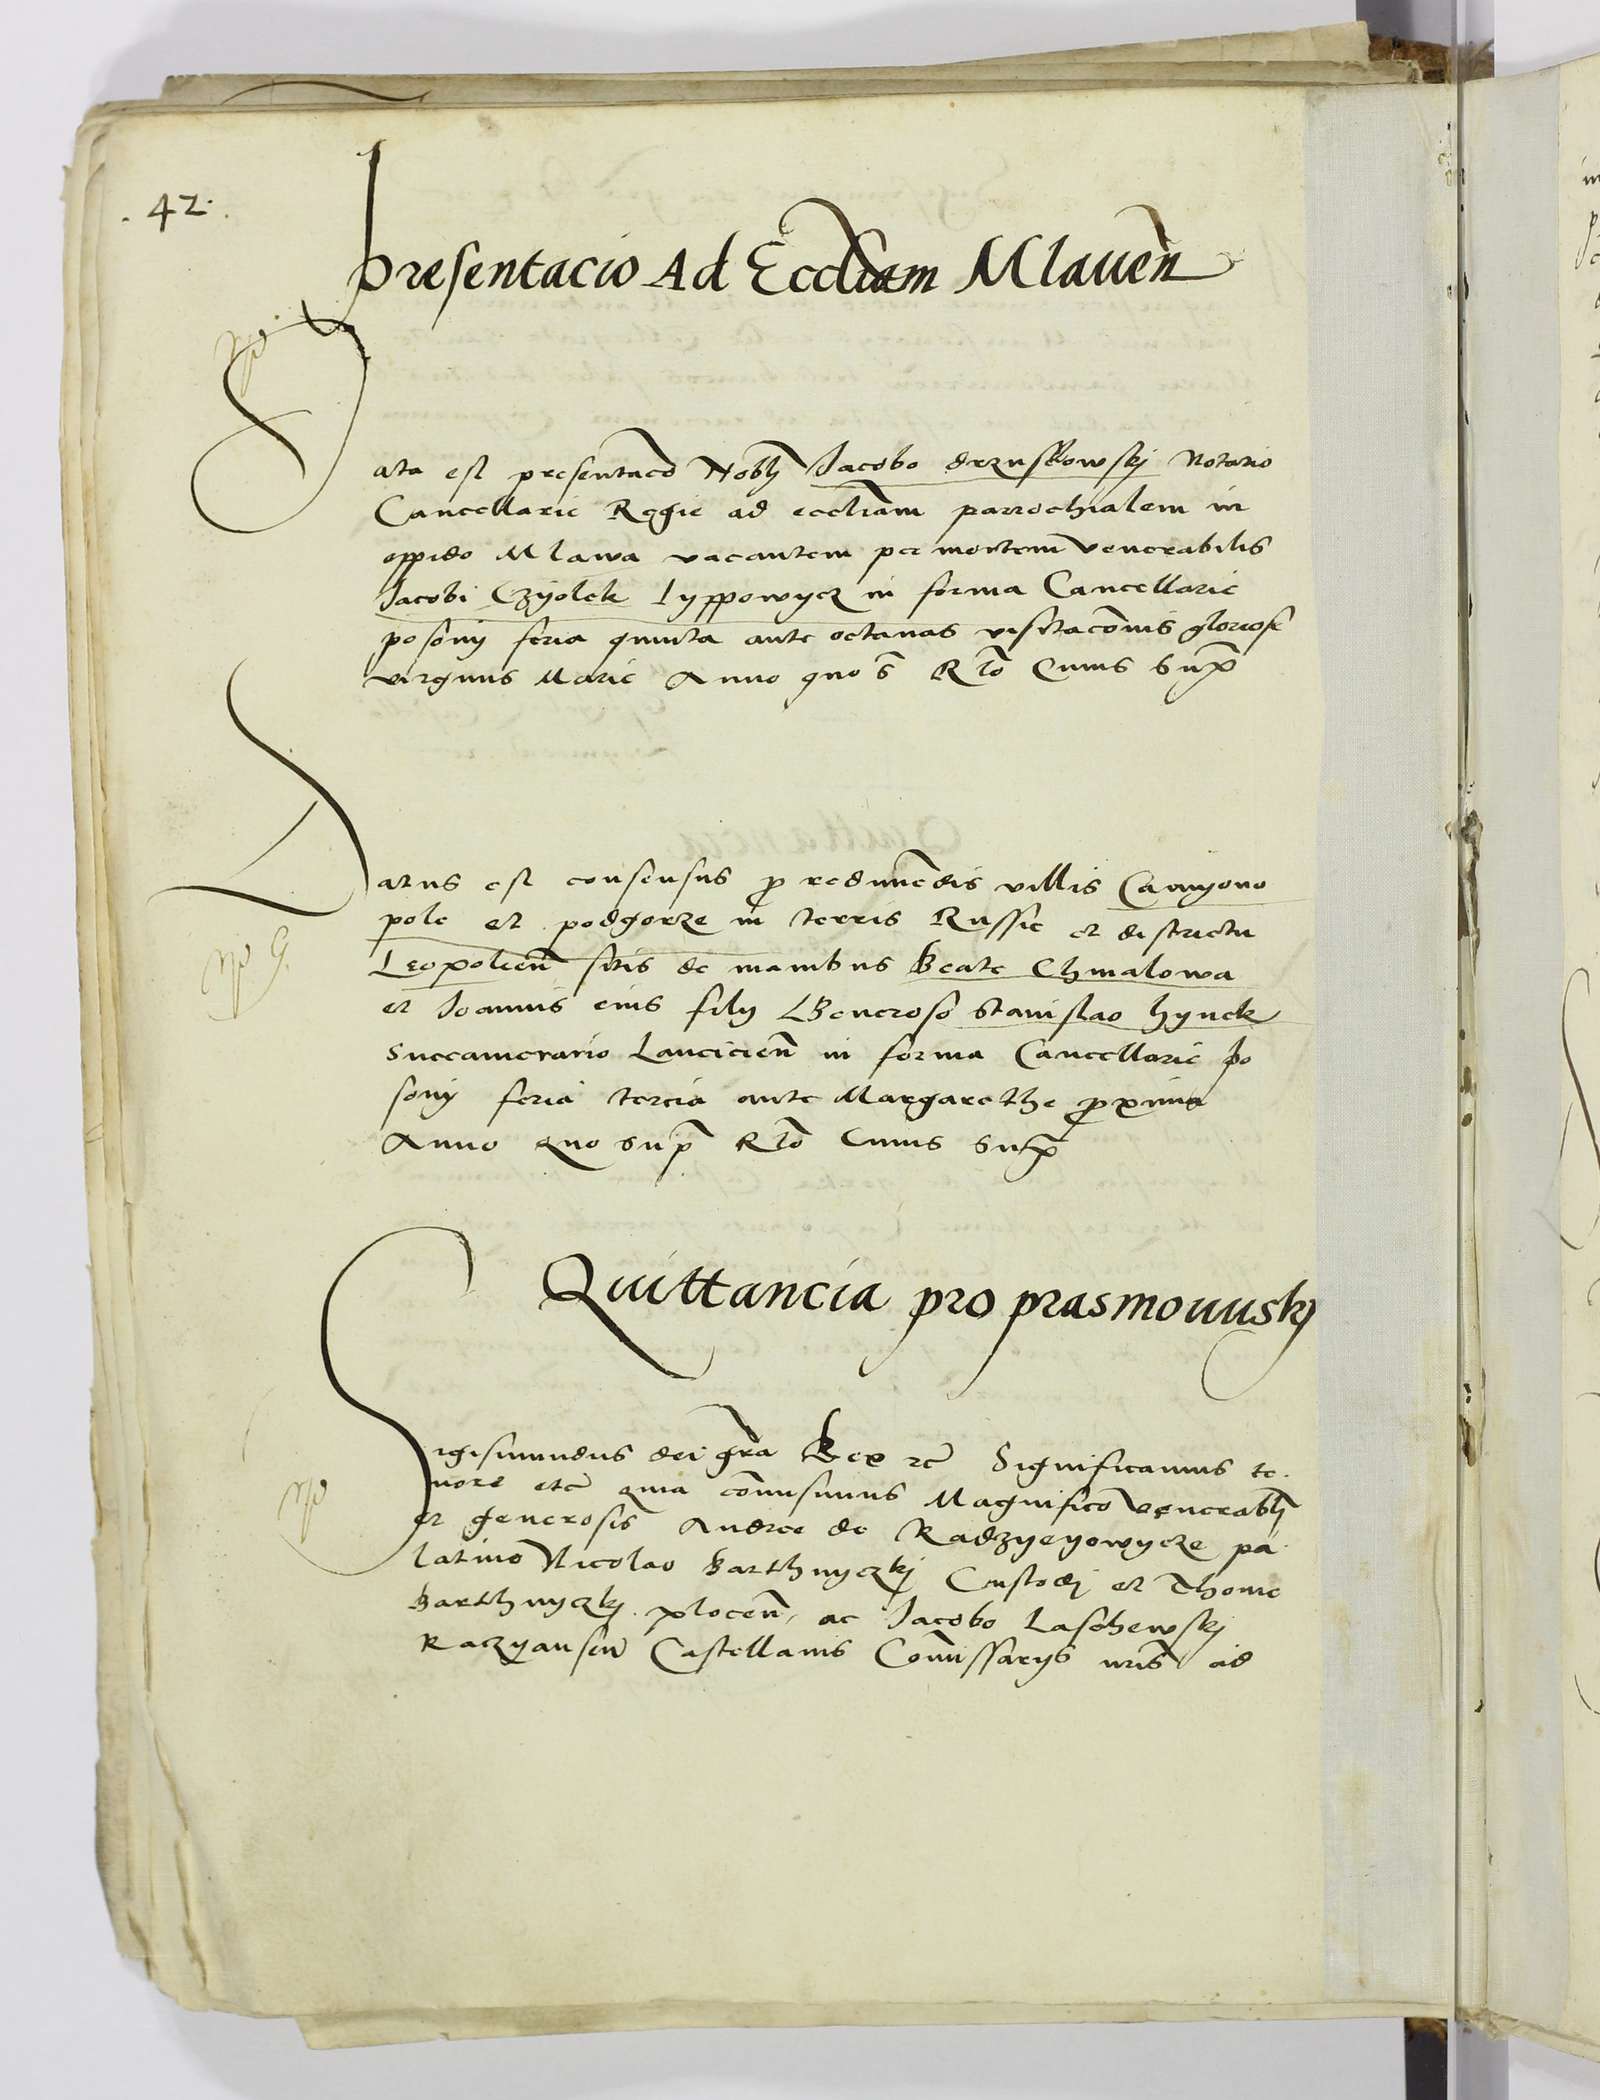 . 42 .
presentacio Ad Eccl̃iam Mlaueñ
Data est presentac̃o Nobl̃j Jacobo drzuskowskj Notario
Cancellarie Regie ad eccl̃iam parrochialem in
oppido Mlawa vacantem per mortem venerabilis
Jacobi Czyolek Lyppowycz in forma Cancellarie
posonij feria quinta ante octauas visitac̃onis gloriose
virginis Marie Anno quo s̃ Rl̃o Cuius sup̃
Datus est consensus p redimẽdis villis Camyono
pole et podgorze in terris Russie et districtu
Leopolieñ sitis de manibus Beate Chmalowa
et Joannis eius filij Generoso Stanislao hynek
Succamerario Lancicieñ in forma Cancellarie po
sonij feria tercia ante Margarethe proxima
Anno quo sup̃ Rl̃o Cuius sup̃
Quittancia pro prasmouuskj
Sigismundus dei gr̃a Rex rc̃ Significamus te-
nore etc̃ quia com̃isimus Magnifico venerabl̃j
et generosis Andree de Radzyeyowycze pa-
latino Nicolao Barthnyczkj Custodj et Thome
Barthnyczkj ploceñ, ac Jacobo Laschewskj
Raczyanseñ Castellanis Com̃issarijs nr̃is ad